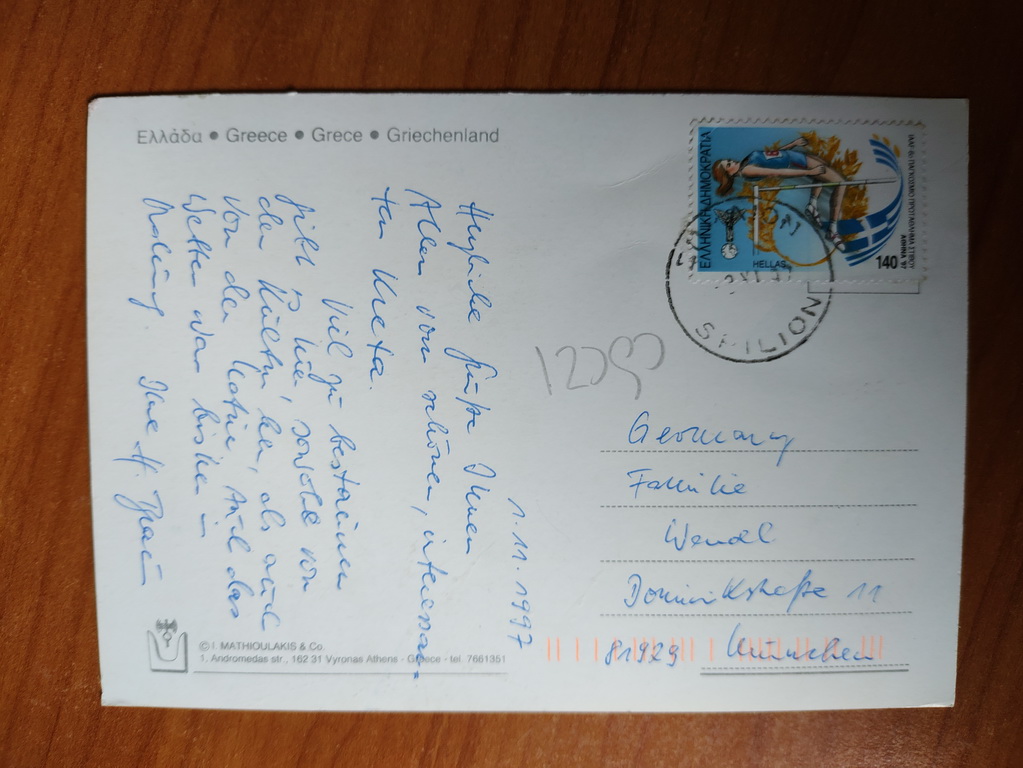 Ελλάδα • Greece • Grece • Griechenland
1.11.1997
Herzliche Grüße Ihnen
Allen vom schönen, interessan-
ten Kreta.
Viel zu bestaunen
gibt's hier, sowohl von
der Kultur her, als auch
von der Natur. Auch das
Wetter war bisher in
Ordnung. Ihre H.
ΕΛΛΗΝΙΚΗ ΔΗΜΟΚΡΑΤΙΑ
HELLAS
ΑΘΗΝΑ '97
140
SPILION
Germany
Familie
Wendl
Dominikstraße 11
81929 München
© I. MATHIOULAKIS & Co.
1. Andromedas str., 162 31 Vyronas Athens - Greece - tel. 7661351